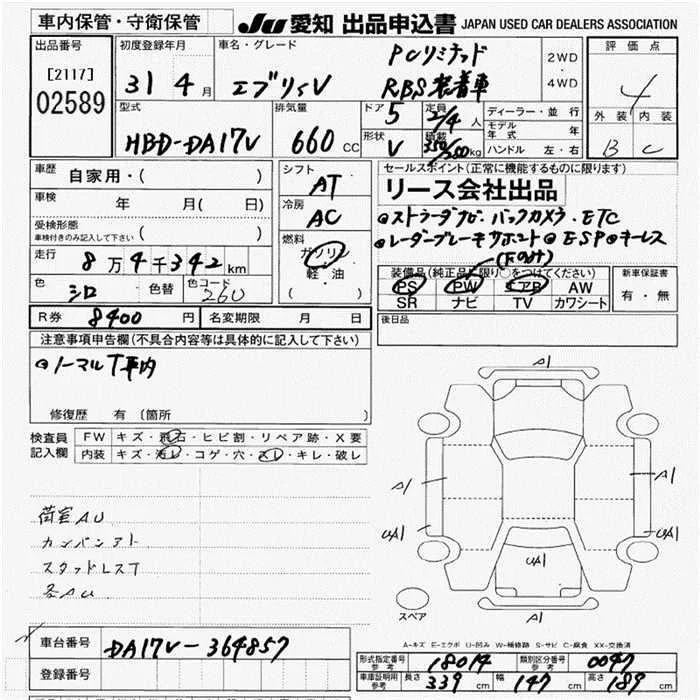 車内保管・守衛保管
JU 愛知 出品申込書 JAPAN USED CAR DEALERS ASSOCIATION
出品番号
[2117]
02589
初度登録年月
31 4 月
車名・グレード
エブリィV
PCリミテッド
RBS装着車
2WD
・
4WD
評価点
4
外装 内装
B C
型式
HBD-DA17V
排気量
660 CC
ドア
5
形状
V
定員
2/4 人
積載
350/250 kg
ディーラー・並行
モデル年式 年
ハンドル 左・右
車歴
自家用・( )
車検
年 月( 日)
受検形態
車検付きのみ記入して下さい ( )
走行
8万4千342km
色
シロ
色替
色コード
26U
シフト
AT
冷房
AC
燃料
ガソリン
・
軽・油
( )
セールスポイント(正常に機能するものに限ります)
リース会社出品
◎ストラーダナビ.バックカメラ.ETC
◎レーダーブレーキサポート◎ESP◎キーレス
(Fのみ)
装備品(純正品に限り○をつけてください)
PS PW エアB AW
SR ナビ TV カワシート
新車保証書
有・無
R券 8400 円
名変期限 月 日
後日品
注意事項申告欄(不具合内容等は具体的に記入して下さい)
◎ノーマルT車内
修復歴 有(箇所
検査員
記入欄
FW キズ・飛石・ヒビ割・リペア跡・X要
内装 キズ・汚レ・コゲ・穴・スレ・キレ・破レ
荷室AU
カンバンアト
スタッドレスT
A1
A1
A1
UA1
UA1
UA1
A1
スペア
A-キズ E-エクボ U-凹み W-補修跡 S-サビ C-腐食 XX-交換済
車台番号 DA17V-364857
登録番号
形式指定番号
参考
18014
類別区分番号
参考
0047
車庫証明用
参考
長さ 339 cm 幅 147 cm 高さ 189 cm